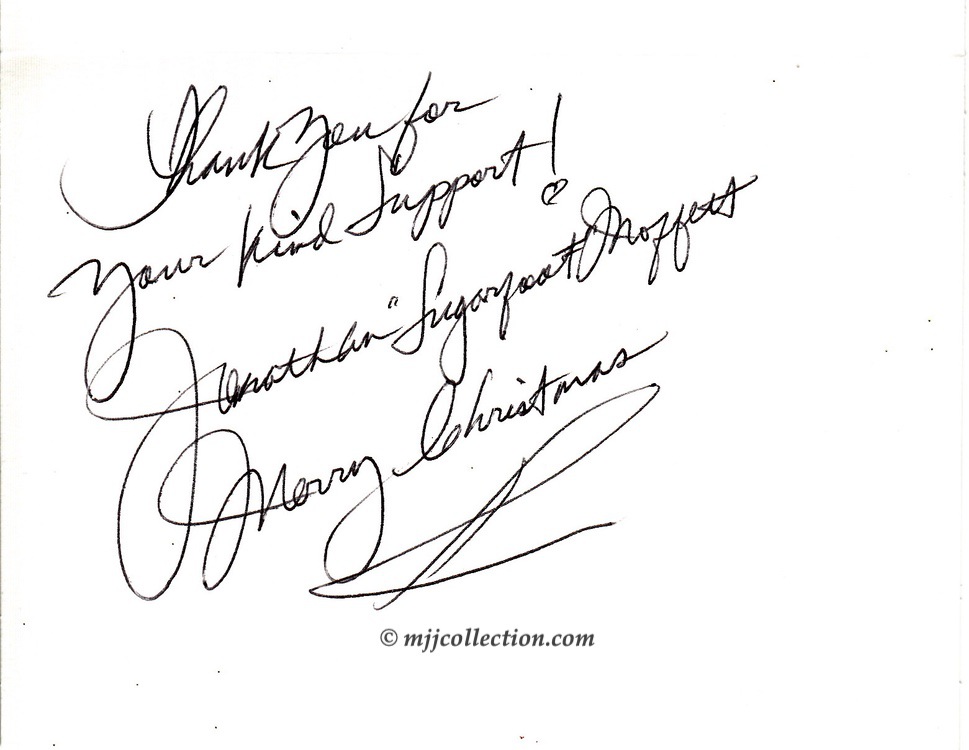 Thank you for
your kind support!
Jonathan "Sugarfoot" Moffett
Merry Christmas
© mjjcollection.com